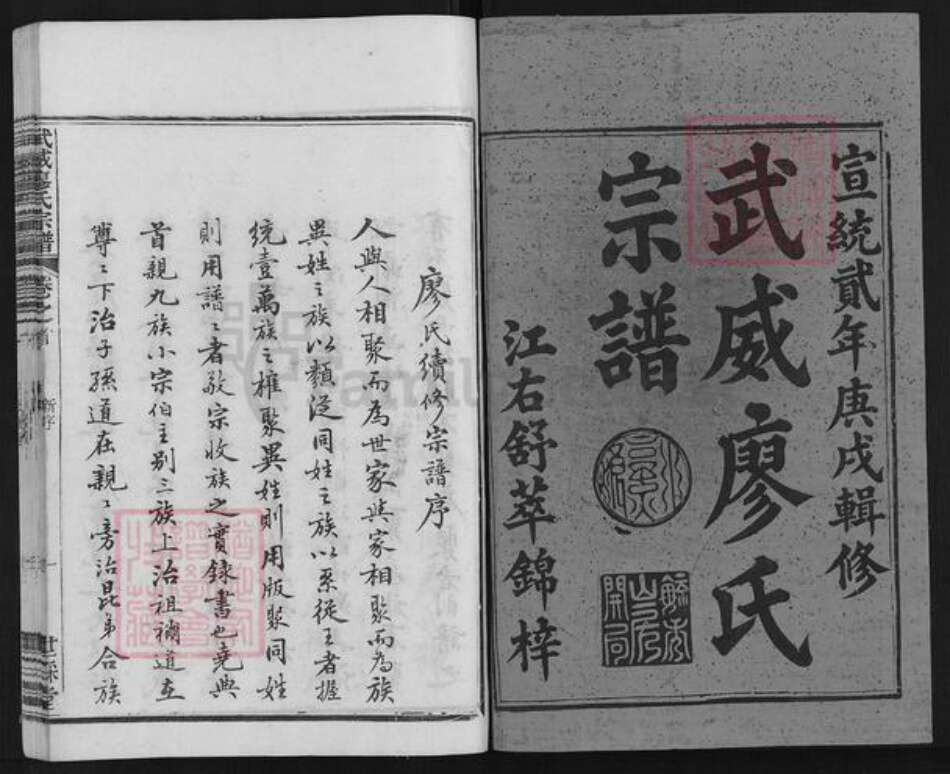 宣統貳年庚戌輯修
武威廖氏
宗譜
江右舒萃錦梓
廖氏續修宗譜序
人與人相聚而為世家與家相聚而為族
異姓之族以類從同姓之族以系從王者握
統壹萬族之權聚異姓則用版聚同姓
則用譜〻者敬宗收族之實錄書也堯典
首親九族小宗伯主別三族上治祖禰道在
尊〻下治子孫道在親〻旁治昆弟合族
武威廖氏宗譜
卷之首
新序
一
世綵堂